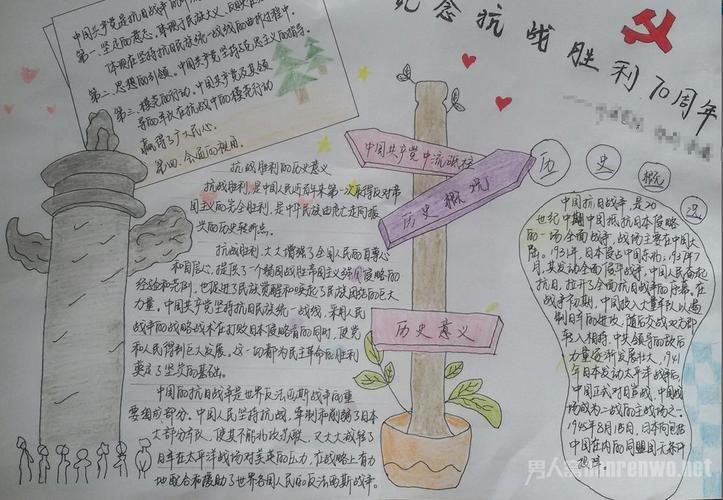 纪念抗战胜利70周年
中国共产党是抗日战争的中
第一、坚定的意志。体现了民族大义
体现在坚持抗日民族统一战线的曲折过程中。
第二、思想的引领。中国共产党坚持马克思主义的指导。
第三、模范的行动。中国共产党及其领
导的军队在抗战中的模范行动
赢得了广大民心。
第四、全面的
抗战胜利的历史意义
抗战胜利,是中国人民近百年来第一次取得反对帝
国主义的完全胜利,是中华民族由危亡走向振
兴的历史转折点。
抗战胜利,大大增强了全国人民的自尊心
和自信心,提供了一个弱国战胜帝国主义强国侵略的
经验和范例,也促进了民族觉醒和唤起了民族团结的巨大
力量。中国共产党坚持抗日民族统一战线,采用人民
战争的战略战术在打败日本侵略者的同时,使党
和人民得到巨大发展。这一切都为民主革命后胜利
奠定了坚实的基础。
中国的抗日战争是世界反法西斯战争的重
要组成部分。中国人民坚持抗战,牵制和削弱了日本
大部分军队,使其不能
日军在太平洋战场对美英的压力,在战略上有力
地配合和援助了世界各国人民的反法西斯战争。
中国共产党中流砥柱
历史概况
历史意义
历史概况
中国抗日战争是20
世纪中期中国抵抗日本侵略
的一场全面战争,战场主要在中国大
陆。1931年,日本侵占中国东北;1937年7
月,其发动全面侵华战争,中国人民奋起
抗日,拉开了全面抗日战争的序幕。在
战争初期,中国投入大量军队以遏
制日军的进攻,随后交战双方都
转入相持,中共领导的敌后
力量逐渐发展壮大。1941
年日本发动太平洋战争后,
中国正式对日宣战,中国战
场成为二战的主战场之一。
1945年8月15日,日本向包括
中国在内的同盟国无条件
投降。
男人窝
nanrenwo.net